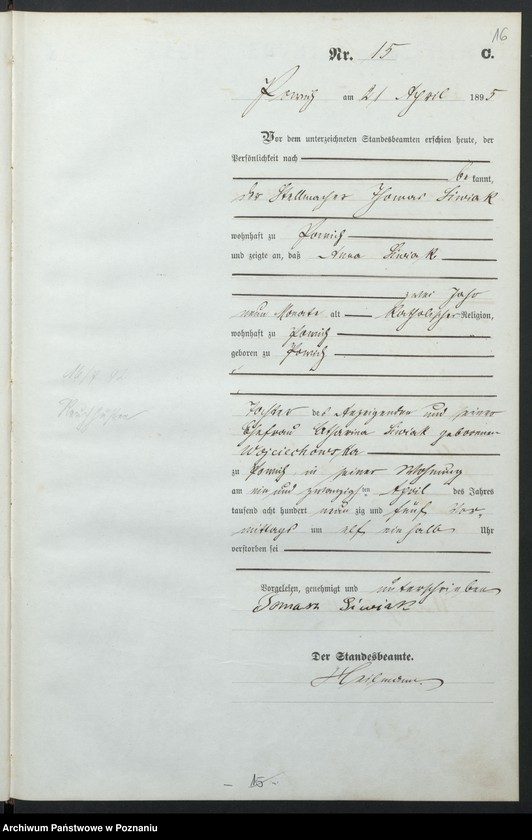 16
Nr. 15 C.
am 21 April 1895
Vor dem unterzeichneten Standesbeamten erschien heute, der
Persönlichkeit nach
be kannt,
der Stellmacher Thomas Siwiak
wohnhaft zu
und zeigte an, daß Anna Siwiak
zwei Jahr
neun Monate alt katholischer Religion,
wohnhaft zu
geboren zu
Tochter des Anzeigenden und seiner
Ehefrau Catharina Siwiak geborenen
Wojciechowska
zu in seiner Wohnung
am ein und zwanzigsten April des Jahres
tausend acht hundert neun zig und fünf Vor-
mittags um elf ein halb Uhr
verstorben sei
Vorgelesen, genehmigt und unterschrieben
Tomasz Siwiak
Der Standesbeamte.
- 15 -
Archiwum Państwowe w Poznaniu